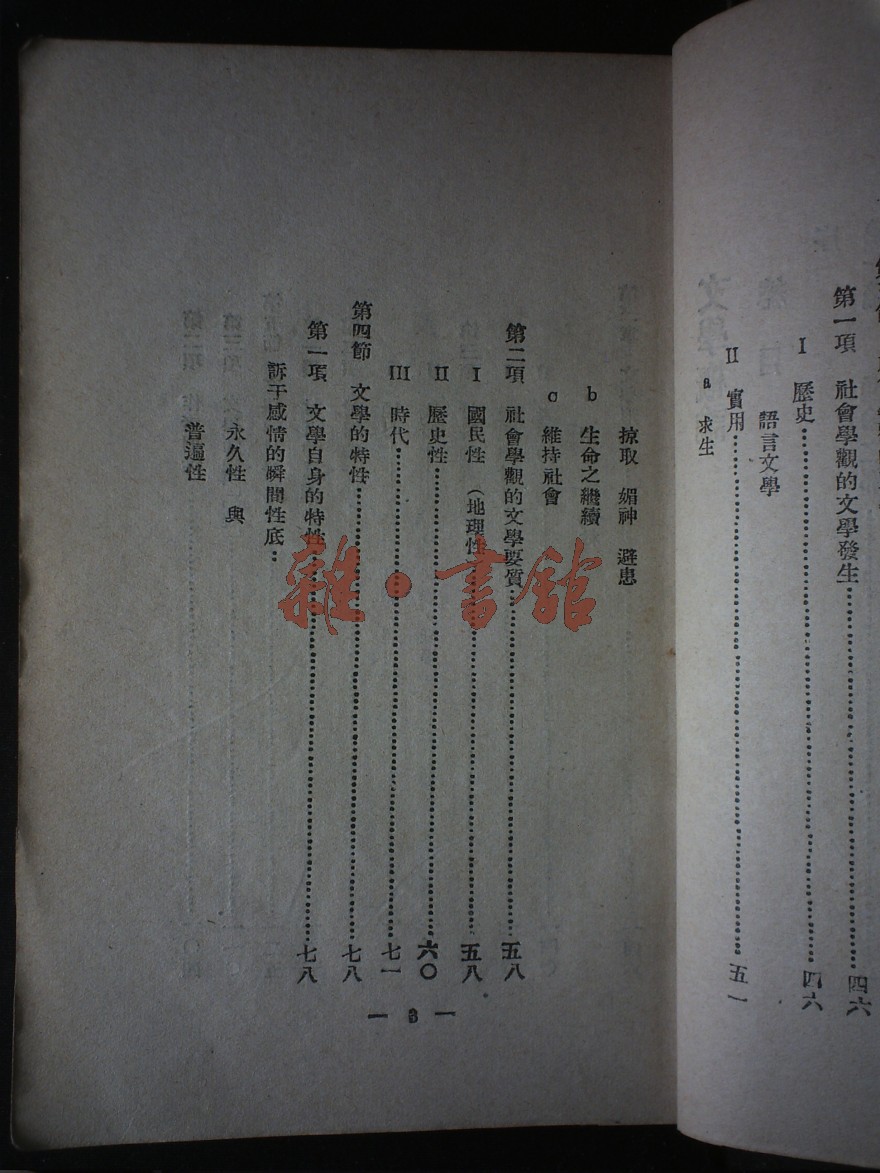 第一項 社會學觀的文學發生……四六
I 歷史……四六
語言文學
II 實用……五一
a 求生
掠取 媚神 避患
b 生命之繼續
c 維持社會
第二項 社會學觀的文學要質……五八
I 國民性 (地理性)……五八
II 歷史性……六〇
III 時代……七一
第四節 文學的特性……七八
第一項 文學自身的特性……七八
訴于感情的瞬間性底：
永久性 與
普遍性
— 3 —
雜·書館